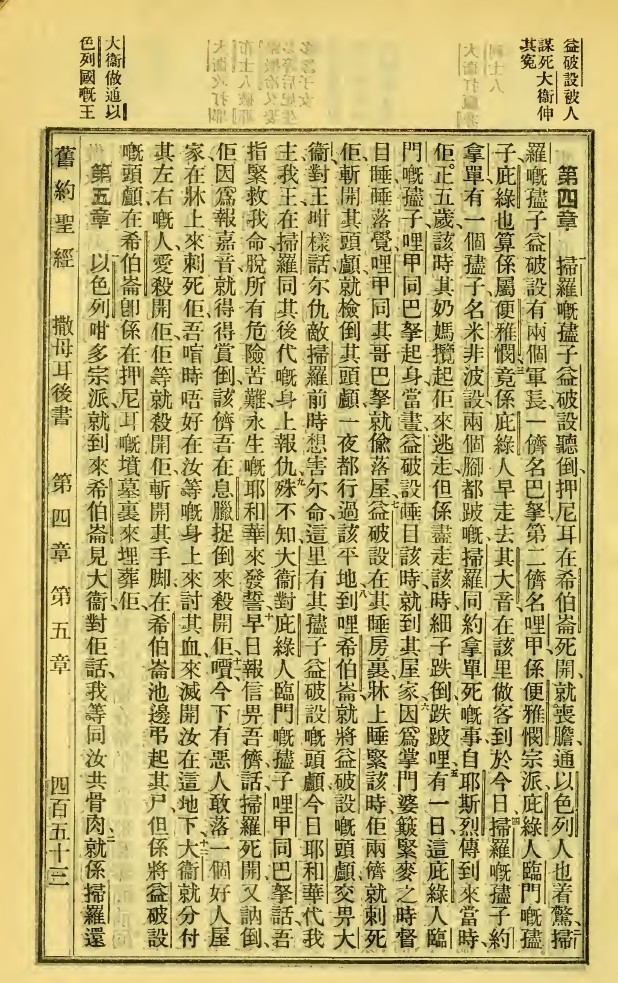 益破設被人
謀死大衞伸
其寃
大衞做通以
色列國嘅王
第四章 掃羅嘅𡥧子益破設聽倒押尼耳在希伯崙死開就喪膽通以色列人也着驚掃
羅嘅𡥧子益破設有兩個軍長一儕名巴拏第二儕名哩甲係便雅憫宗派庇綠人臨門嘅𡥧
子庇綠也算係屬便雅憫竟係庇綠人早走去其大音在該里做客到於今日掃羅嘅𡥧子約
拿單有一個𡥧子名米非波設兩個腳都跛嘅掃羅同約拿單死嘅事自耶斯烈傳到來當時
佢正五歲該時其奶媽攬起佢來逃走但係盡走該時細子跌倒跌跛哩有一日這庇綠人臨
門嘅𡥧子哩甲同巴拏起身當晝益破設睡目該時就到其屋家因爲掌門婆簸緊麥之時督
目睡睡落覺哩甲同其哥巴拏就偸落屋益破設在其睡房裏牀上睡緊該時佢兩儕就刺死
佢斬開其頭顱就檢倒其頭顱一夜都行過該平地到哩希伯崙就將益破設嘅頭顱交畀大
衞對王咁樣話尔仇敵掃羅前時想害尔命這里有其𡥧子益破設嘅頭顱今日耶和華代我
主我王在掃羅同其後代嘅身上報仇殊不知大衞對庇綠人臨門嘅𡥧子哩甲同巴拏話吾
指緊救我命脫所有危險苦難永生嘅耶和華來發誓早日報信畀吾儕話掃羅死開又訥倒
佢因爲報嘉音就得得賞倒該儕吾在息臘捉倒來殺開佢嘪今下有惡人敢落一個好人屋
家在牀上來刺死佢吾喧時唔好在汝等嘅身上來討其血來滅開汝在這地下大衞就分付
其左右嘅人愛殺開佢佢等就殺開佢斬開其手脚在希伯崙池邊弔起其尸但係將益破設
嘅頭顱在希伯崙卽係在押尼耳嘅墳墓裏來埋葬佢
第五章 以色列咁多宗派就到來希伯崙見大衞對佢話我等同汝共骨肉就係掃羅還
舊約聖經 撒母耳後書 第四章 第五章 四百五十三